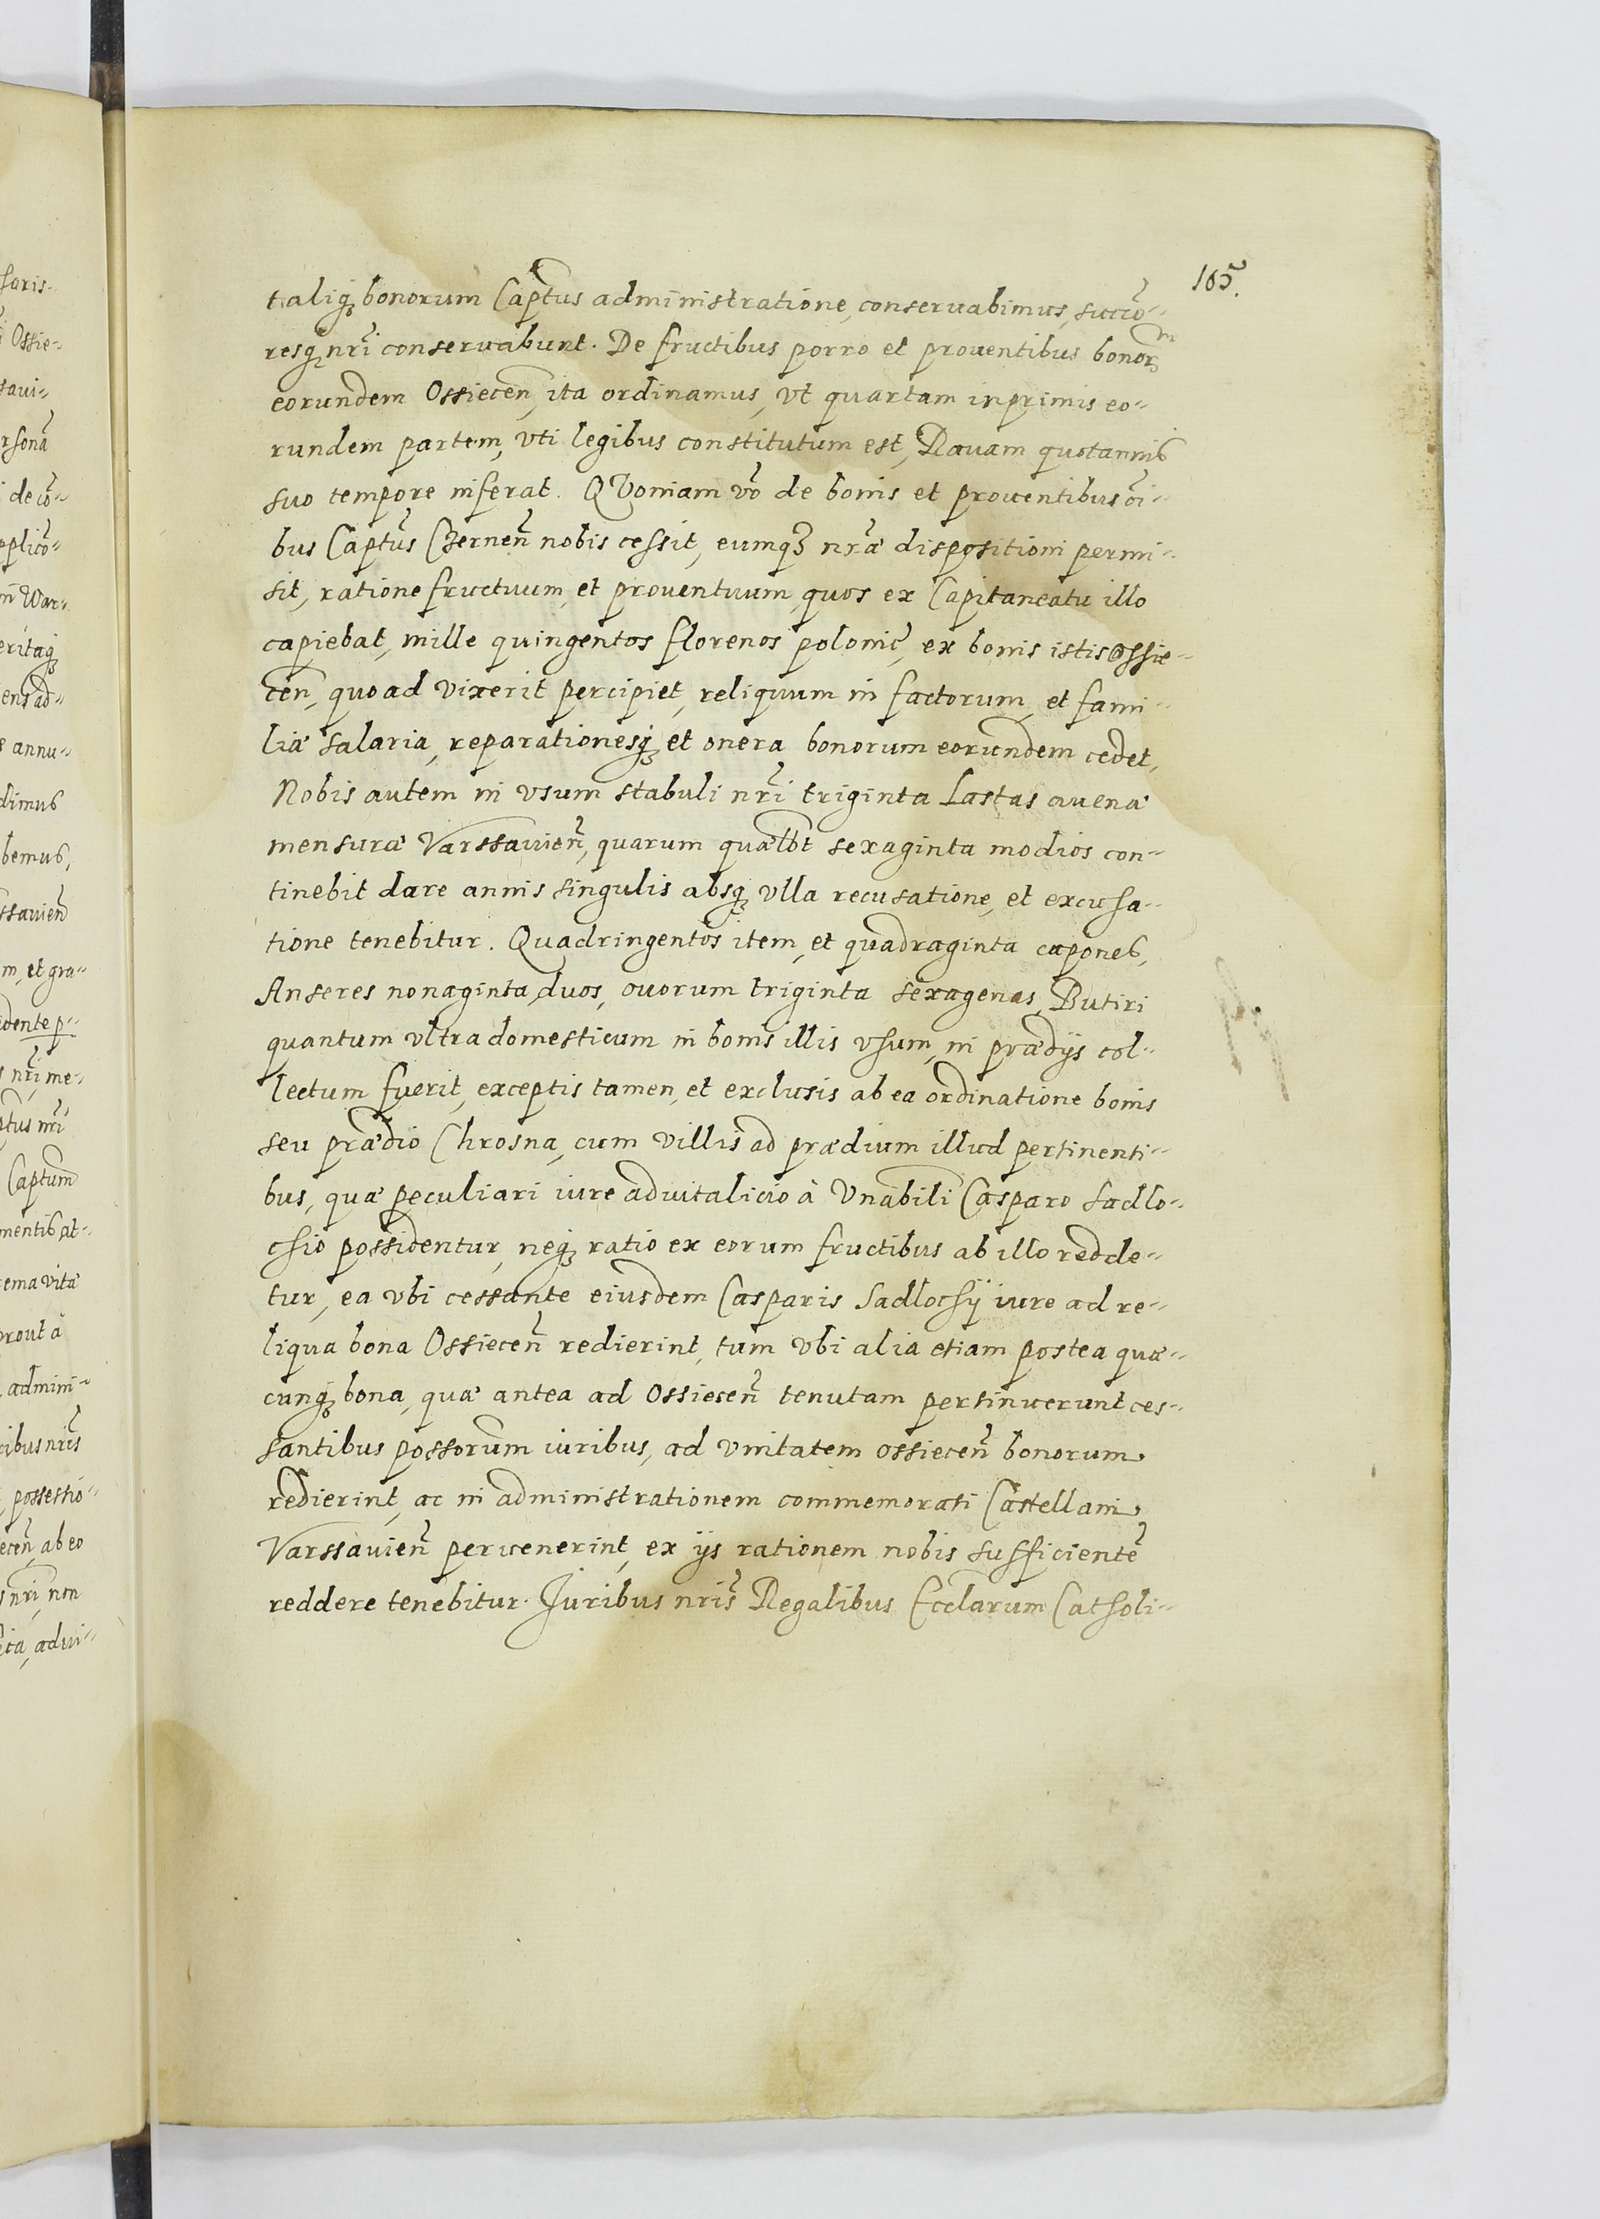 165.
taliq₃ bonorum Captus administratione, conservabimus, succō-
resq₃ nr̃i conservabunt. De fructibus porro et proventibus bonorᵐ
eorundem Ossiecen̄, ita ordinamus, vt quartam inprimis eo-
rundem partem, vti legibus constitutum est, Ravam quotannis
suo tempore inferat. QVoniam vō de bonis et proventibus õi-
bus Captus Czernen̄ nobis cessit, eumq₃ nr̃æ dispositioni permi-
sit, ratione fructuum, et proventuum, quos ex Capitaneatu illo
capiebat, mille quingentos florenos polonic̃, ex bonis istis Ossie-
cen̄, quoad vixerit percipiet, reliquum in factorum, et fami-
liæ salaria, reparationesq₃ et onera bonorum eorundem cedet,
Nobis autem in vsum stabuli nr̃i triginta Lastas avenæ
mensuræ Varssavien̄, quarum quælbt sexaginta modios con-
tinebit dare annis singulis absq₃ vlla recusatione, et excusa-
tione tenebitur. Quadringentos item, et quadraginta capones,
Anseres nonaginta duos, ovorum triginta sexagenas, Butiri
quantum vltra domesticum in bonis illis vsum, in prædijs col-
lectum fuerit, exceptis tamen, et exclusis ab ea ordinatione bonis
seu prædio Chrosna, cum villis ad prædium illud pertinenti-
bus, quæ peculiari iure advitalicio à Vnabili Casparo Sadlo-
chio possidentur, neq₃ ratio ex eorum fructibus ab illo redde-
tur, ea vbi cessante eiusdem Casparis Sadlochij iure ad re-
liqua bona Ossiecen̄ redierint, tum vbi alia etiam postea quæ-
cunq₃ bona, quæ antea ad Ossiecen̄ tenutam pertinuerunt ces-
santibus possorum iuribus, ad vnitatem ossiecen̄ bonorum
redierint, ac in administrationem commemorati Castellani
Varssavien̄ pervenerint, ex ijs rationem nobis sufficientẽ
reddere tenebitur. Juribus nr̃is Regalibus Ecclarum Catholi-